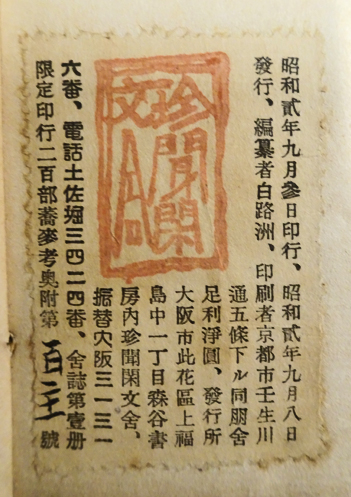 昭和貳年九月參日印行、昭和貳年九月八日
發行、編纂者白路洲、印刷者京都市壬生川
通五條下ル同朋舍
足利淨圓、發行所
大阪市此花區上福
島中一丁目森谷書
房内珍聞閑文舍、
振替大阪三一三一
六番、電話土佐堀三四二四番、舍誌第壹册
限定印行二百部蕎麥考奧附第百
號
珍聞閑文